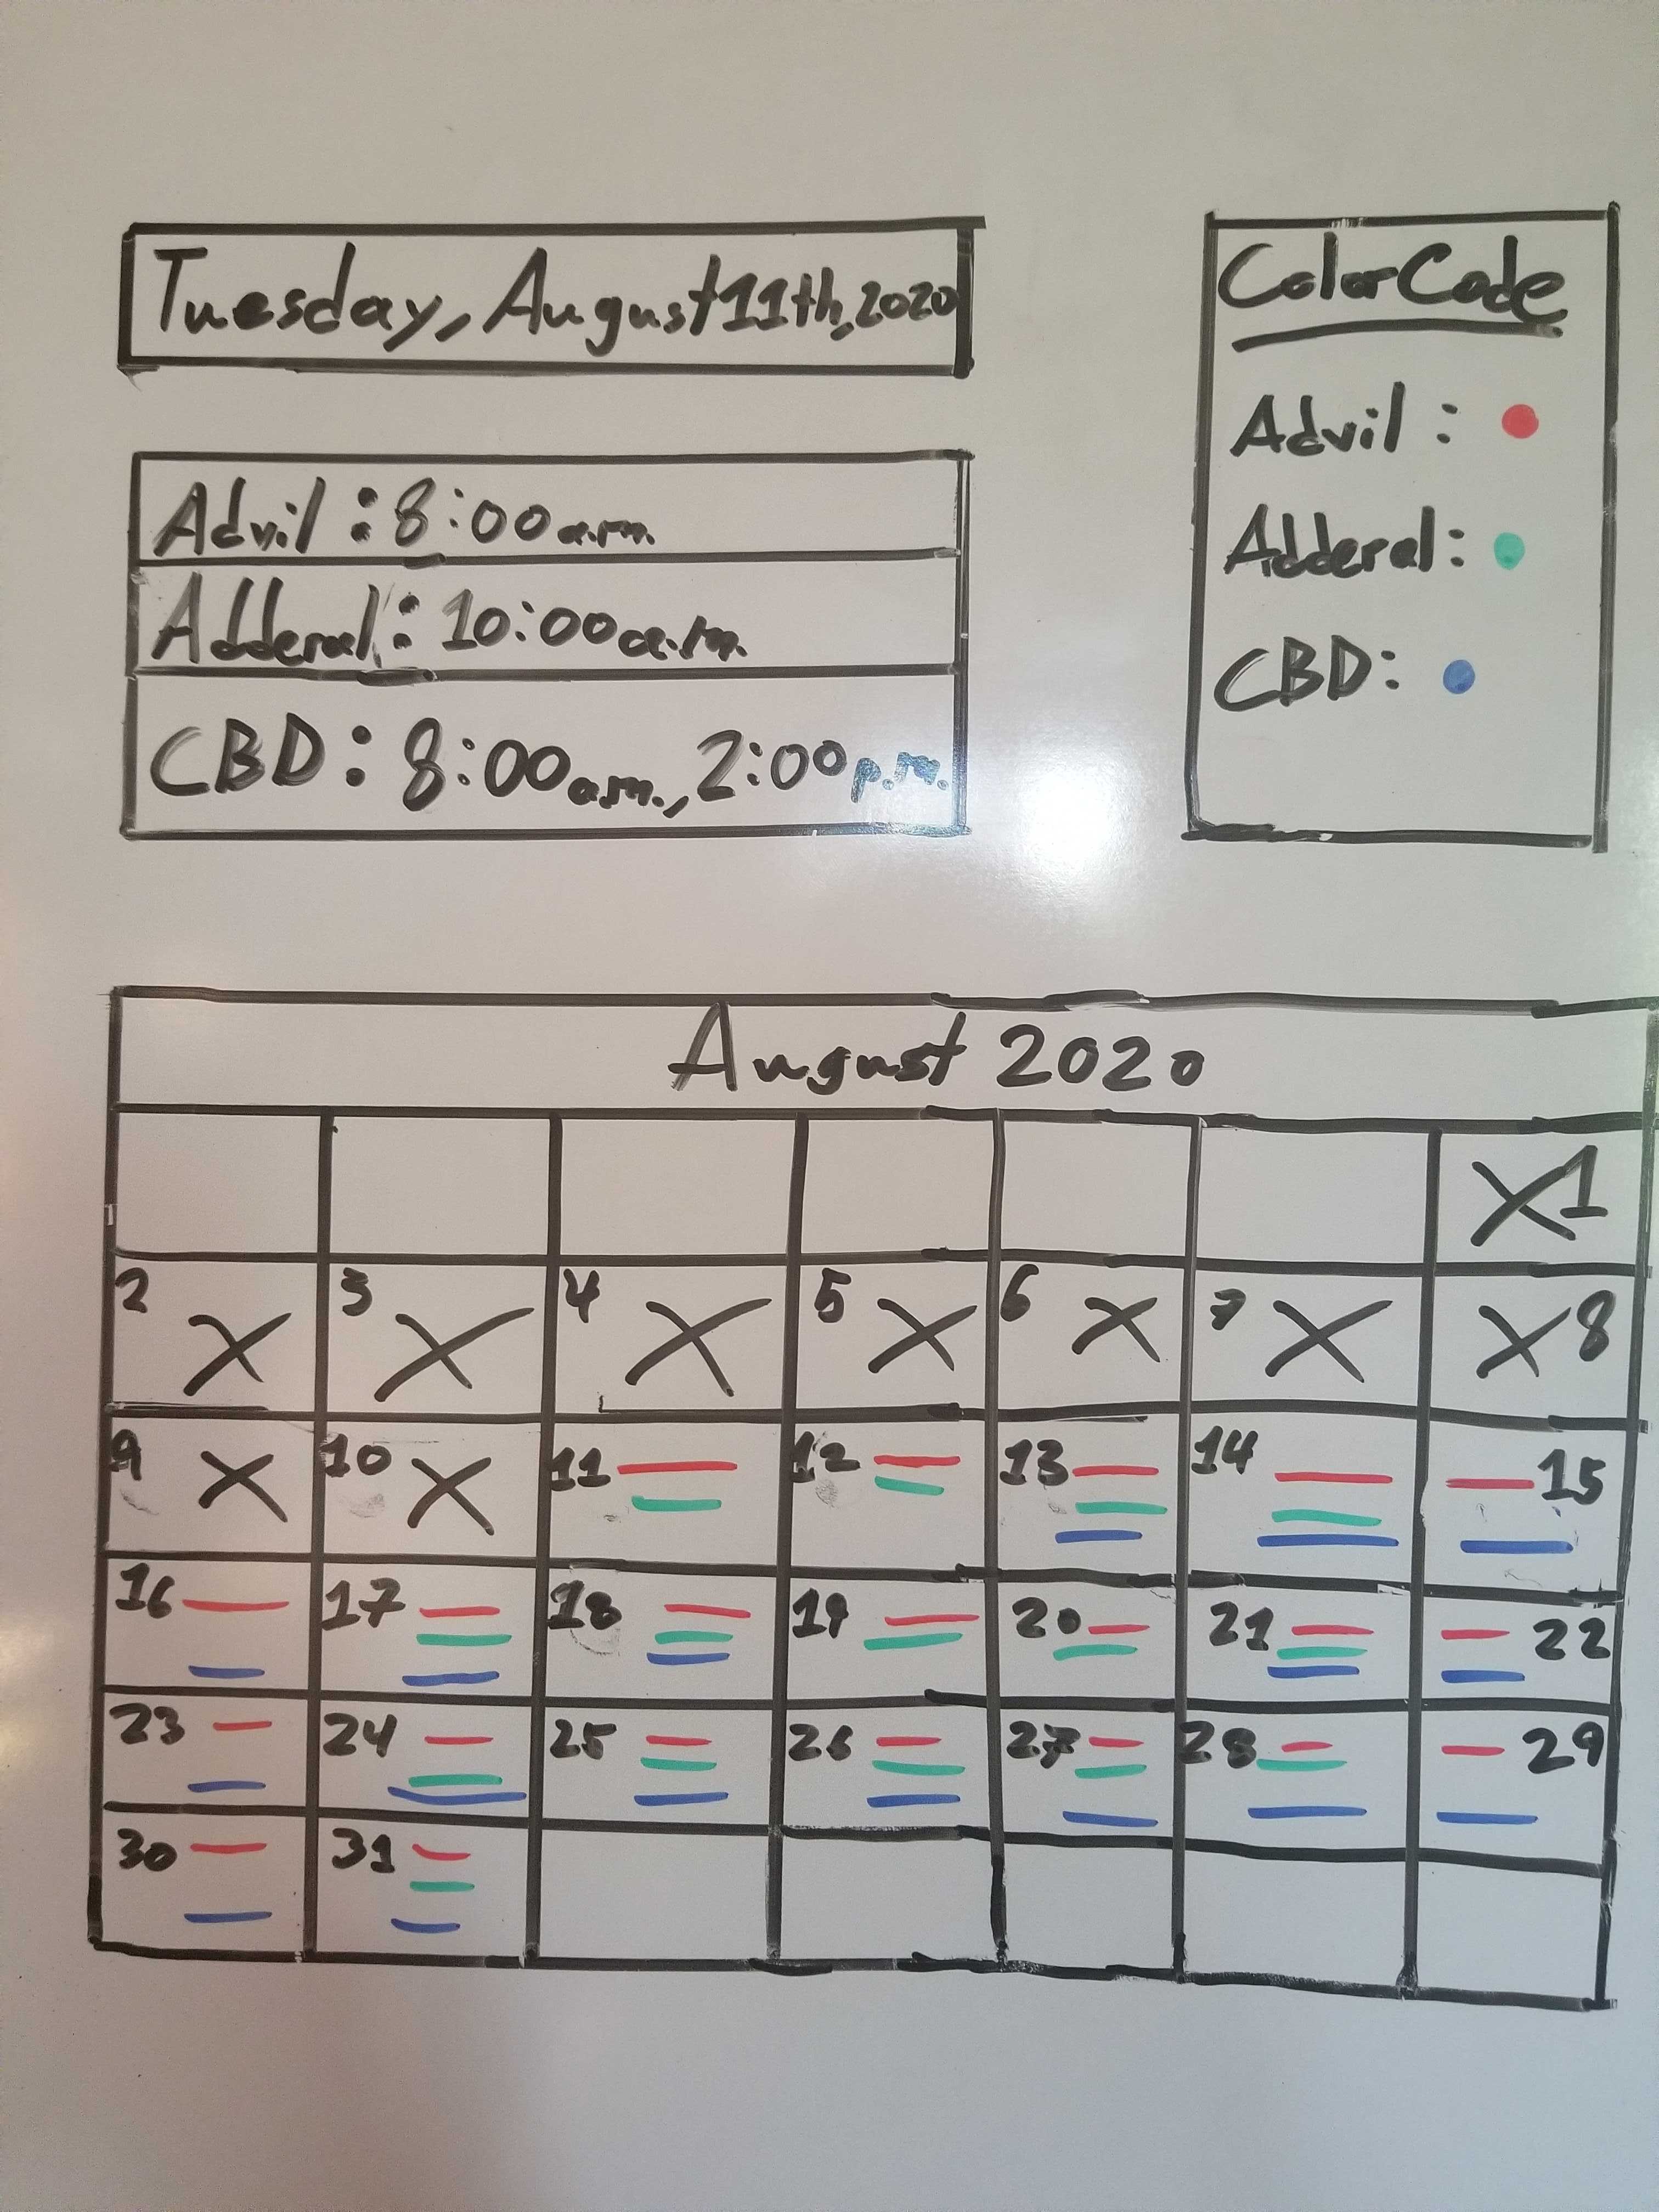 Tuesday, August 11th, 2020
Color Code
Advil : 8:00 a.m.
Adderal : 10:00 a.m.
CBD : 8:00 a.m., 2:00 p.m.
Advil :
Adderal :
CBD :
August 2020
X 1
2 X 3 X 4 X 5 X 6 X 7 X X 8
9 X 10 X 11 12 13 14 15
16 17 18 19 20 21 22
23 24 25 26 27 28 29
30 31